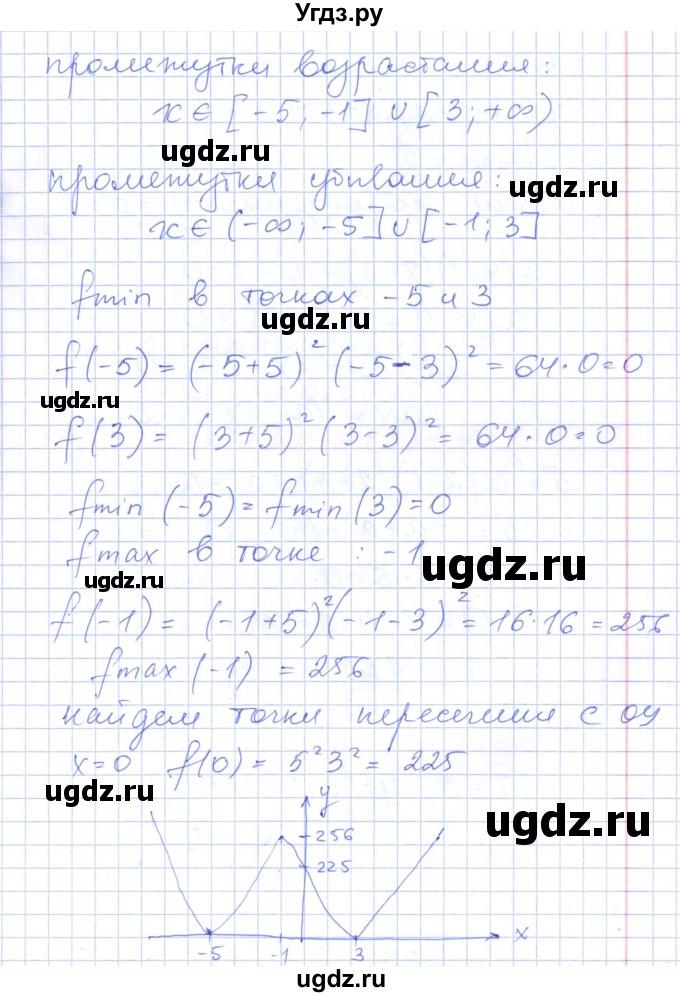 Угдз.ру
промежутки возрастания:
x ∈ [-5; -1] ∪ [3; +∞)
ugdz.ru
промежутки убывания:
ugdz.ru
x ∈ (-∞; -5] ∪ [-1; 3]
fmin в точках -5 и 3
ugdz.ru
f(-5) = (-5+5)² (-5-3)² = 64·0=0
ugdz.ru
f(3) = (3+5)² (3-3)² = 64·0=0
fmin (-5) = fmin (3) = 0
fmax в точке : -1
ugdz.ru
ugdz.ru
f(-1) = (-1+5)²(-1-3)² = 16·16 = 256
fmax (-1) = 256
найдем точки пересечения с оу
x=0 f(0) = 5²3² = 225
ugdz.ru
ugdz.ru
y
256
ugdz.ru
225
x
-5 -1 3
ugdz.ru